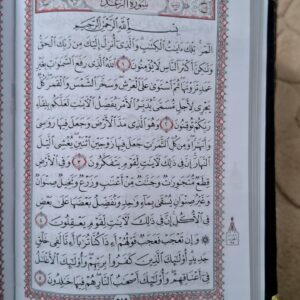 سورة الرعد
بسم الله الرحمن الرحيم
المر تلك ءايت الكتب والذى أنزل إليك من ربك الحق
ولكن أكثر الناس لا يؤمنون ١ الله الذى رفع السموت بغير
عمد ترونها ثم استوى على العرش وسخر الشمس والقمر كل
يجرى لأجل مسمى يدبر الأمر يفصل الأيت لعلكم بلقاء
ربكم توقنون ٢ وهو الذى مد الأرض وجعل فيها روسى
وأنهرا ومن كل الثمرت جعل فيها زوجين اثنين يغشى اليل
النهار إن فى ذلك لأيت لقوم يتفكرون ٣ وفى الأرض
قطع متجورت وجنت من أعنب وزرع ونخيل صنوان
وغير صنوان يسقى بماء وحد ونفضل بعضها على بعض
فى الأكل إن فى ذلك لأيت لقوم يعقلون ٤
۞ وإن تعجب فعجب قولهم أءذا كنا تربا أءنا لفى خلق
جديد أولئك الذين كفروا بربهم وأولئك الأغلل
فى أعناقهم وأولئك أصحب النار هم فيها خلدون ٥